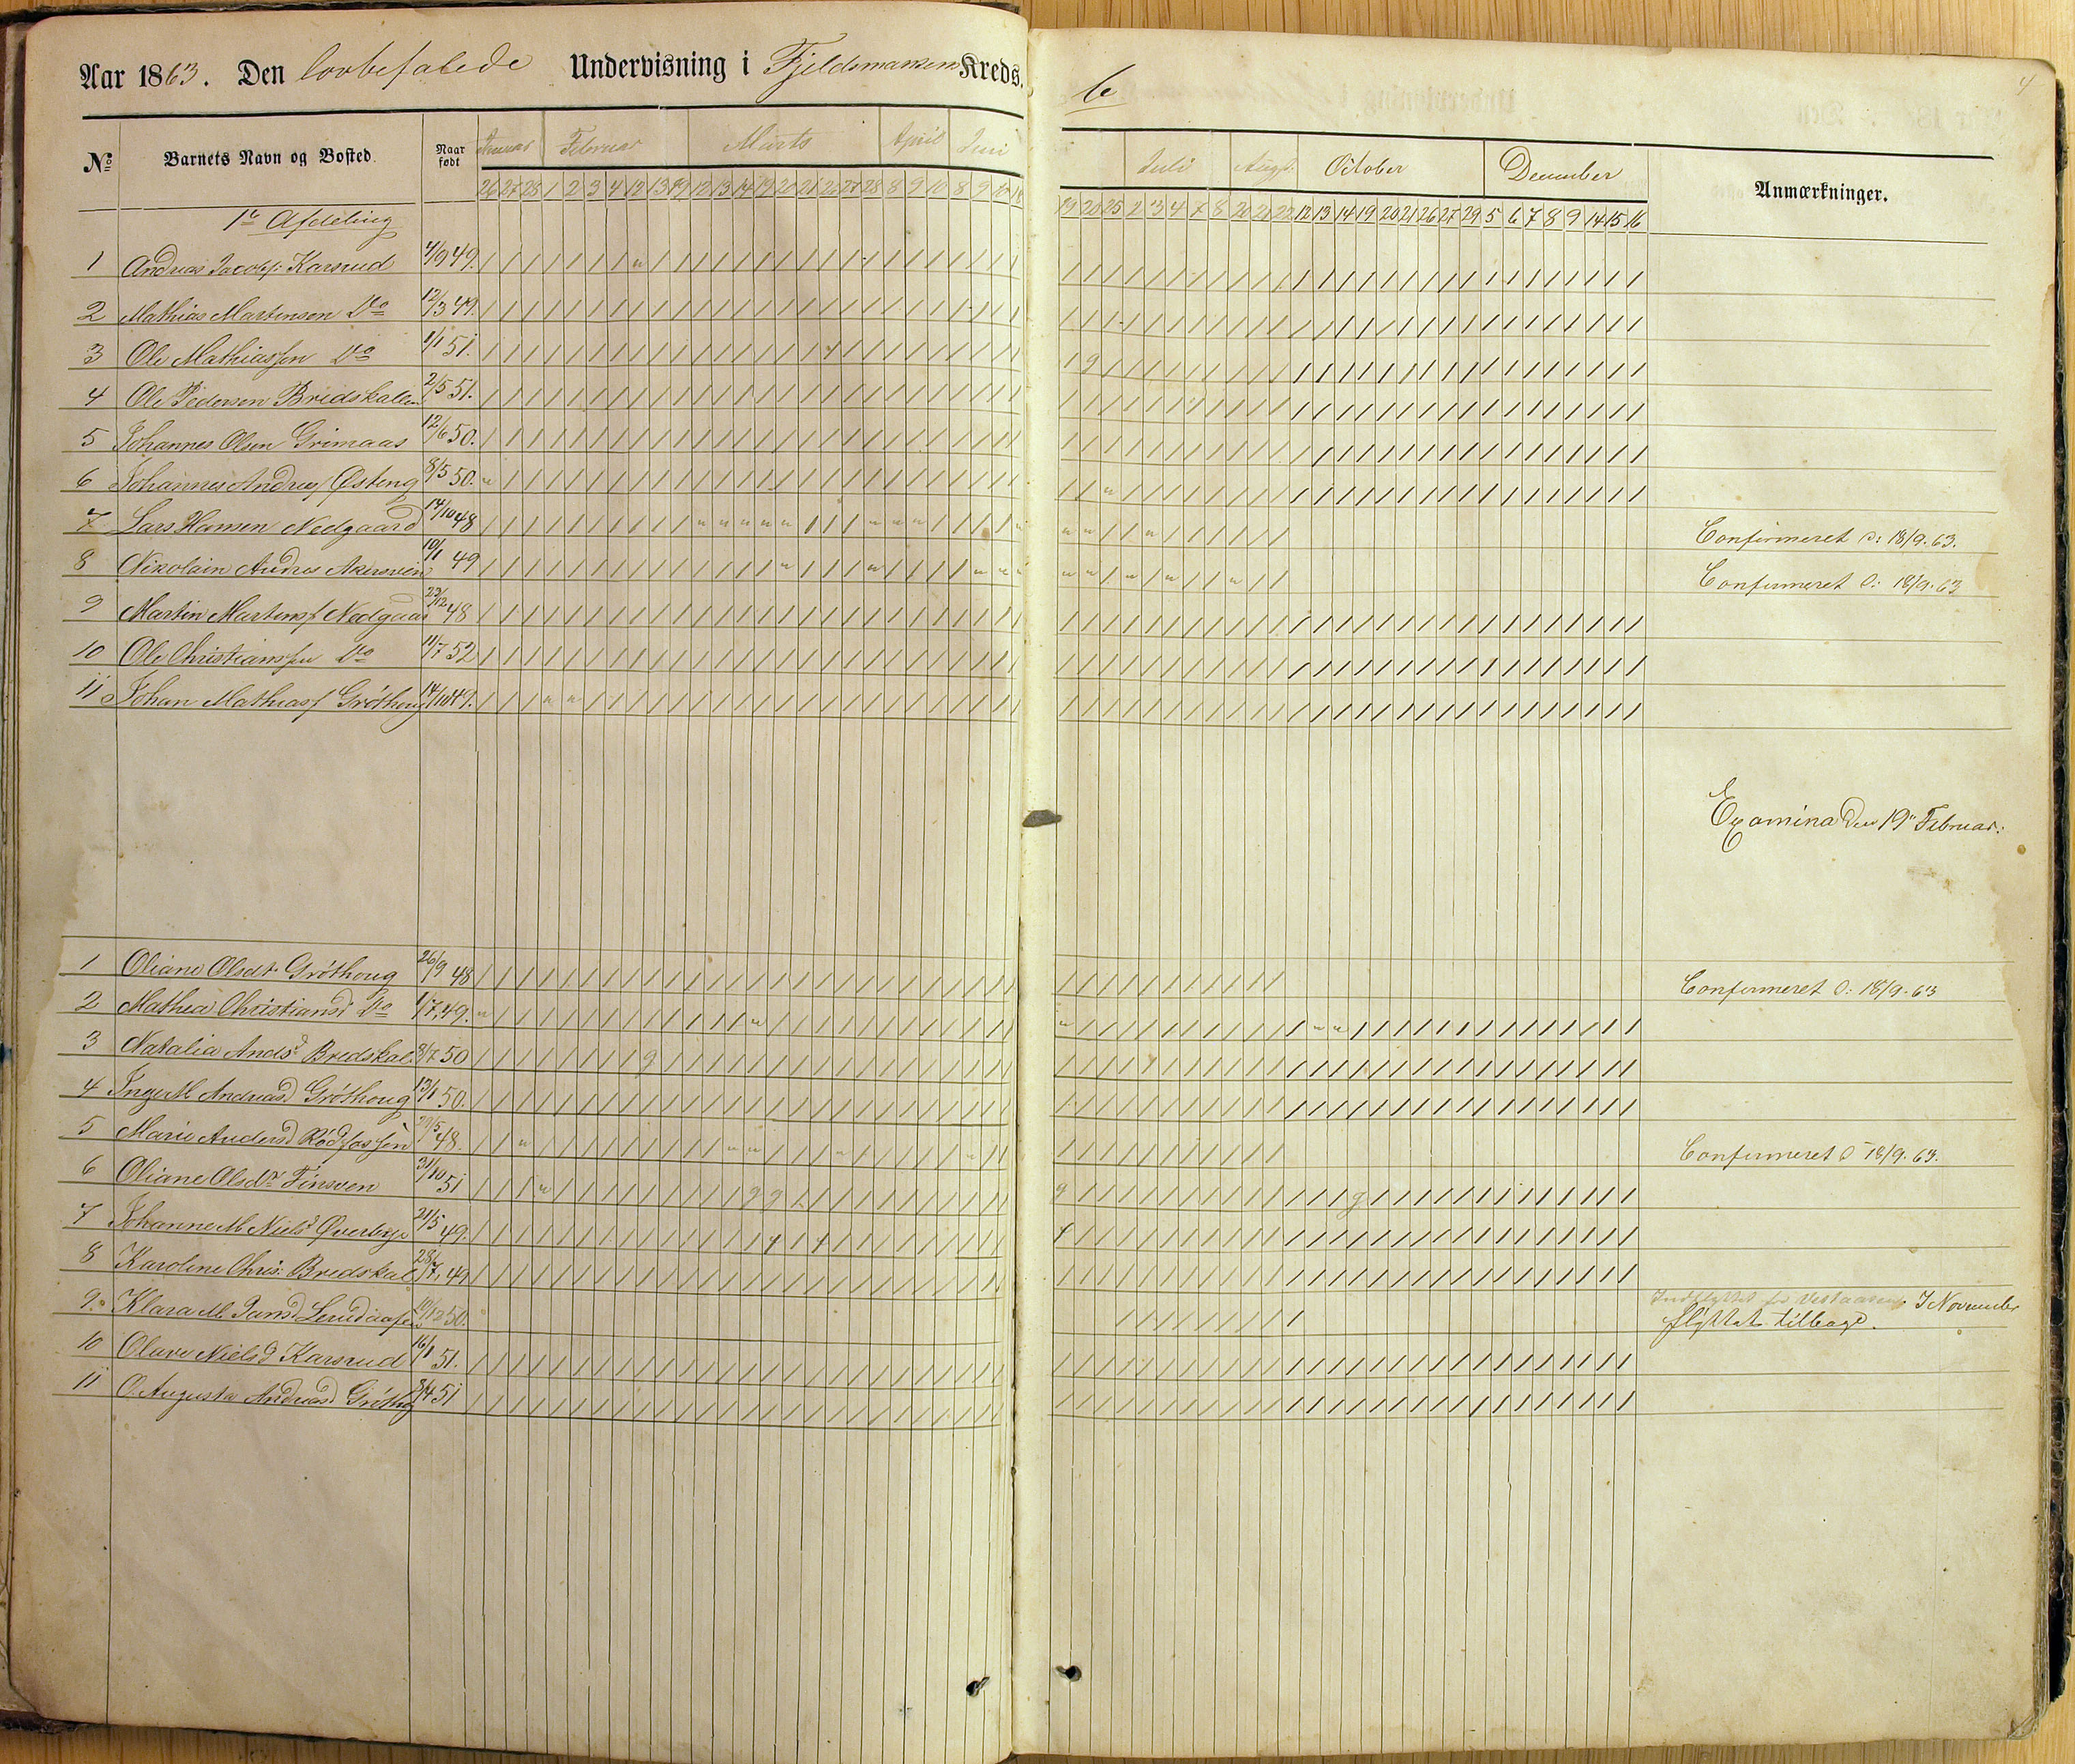 Aar 1863. Den lovbefalede Undervisning i Fjeldsmarken Kreds.
No Barnets Navn og Bosted. Naar født Januar Februar Marts April Juni
26 27 28 1 2 3 4 12 13 19 12 13 14 19 20 21 26 27 28 8 9 10 8 9 10 18
1e Afdeling
1 Andreas Jacobs: Karsrud 4/9 49.
2 Mathias Martinsen Do 12/3 49.
3 Ole Mathiassen Do 1/1 51.
4 Ole Pedersen Bredskallen 2/5 51.
5 Johannes Olsen Grimaas 12/6 50.
6 Johannes Andreas Østeng 8/5 50.
7 Lars Hansen Nedgaard 14/10 48
8 Nikolain Andres 10/1 49
9 Martin Martins Nedgaar 23/12 48
10 Ole Christiansen Do 11/7 52
11 Johan Mathias Gröthoug 14/10 49.
1 Oliane Olsdt. Gröthoug 26/9 48
2 Mathea Christiansd Do 1/7 49.
3 Natalia Andsd Bredskal 8/7 50
4 Inger M Andreasd Gröthoug 13/1 50.
5 Marie Andersd 48.
6 Oliane Olsdr Finsven 31/10 51
7 Johanne M. Nielsd Øverbye 21/5 49.
8 Karoline Chris: Bredskal 28/7 49
9. Klara M. 10/12 50.
10 Oluve Nielsd Karsrud 16/1 51.
11 O. Augusta Andreasd Gröthog 3/4 51
6
4
Juli Augt. October December Anmærkninger.
19 20 25 2 3 4 7 8 20 21 22 12 13 14 19 20 21 26 27 29 5 6 7 8 9 14 15 16
Confirmeret d: 18/9. 63.
Confirmeret d: 18/9. 63
Examina den 19de Februar:
Confirmeret d: 18/9. 63
Confirmeret d 18/9. 63.
Indflyttet fr Vestaasen. I November
flyttet tilbage.